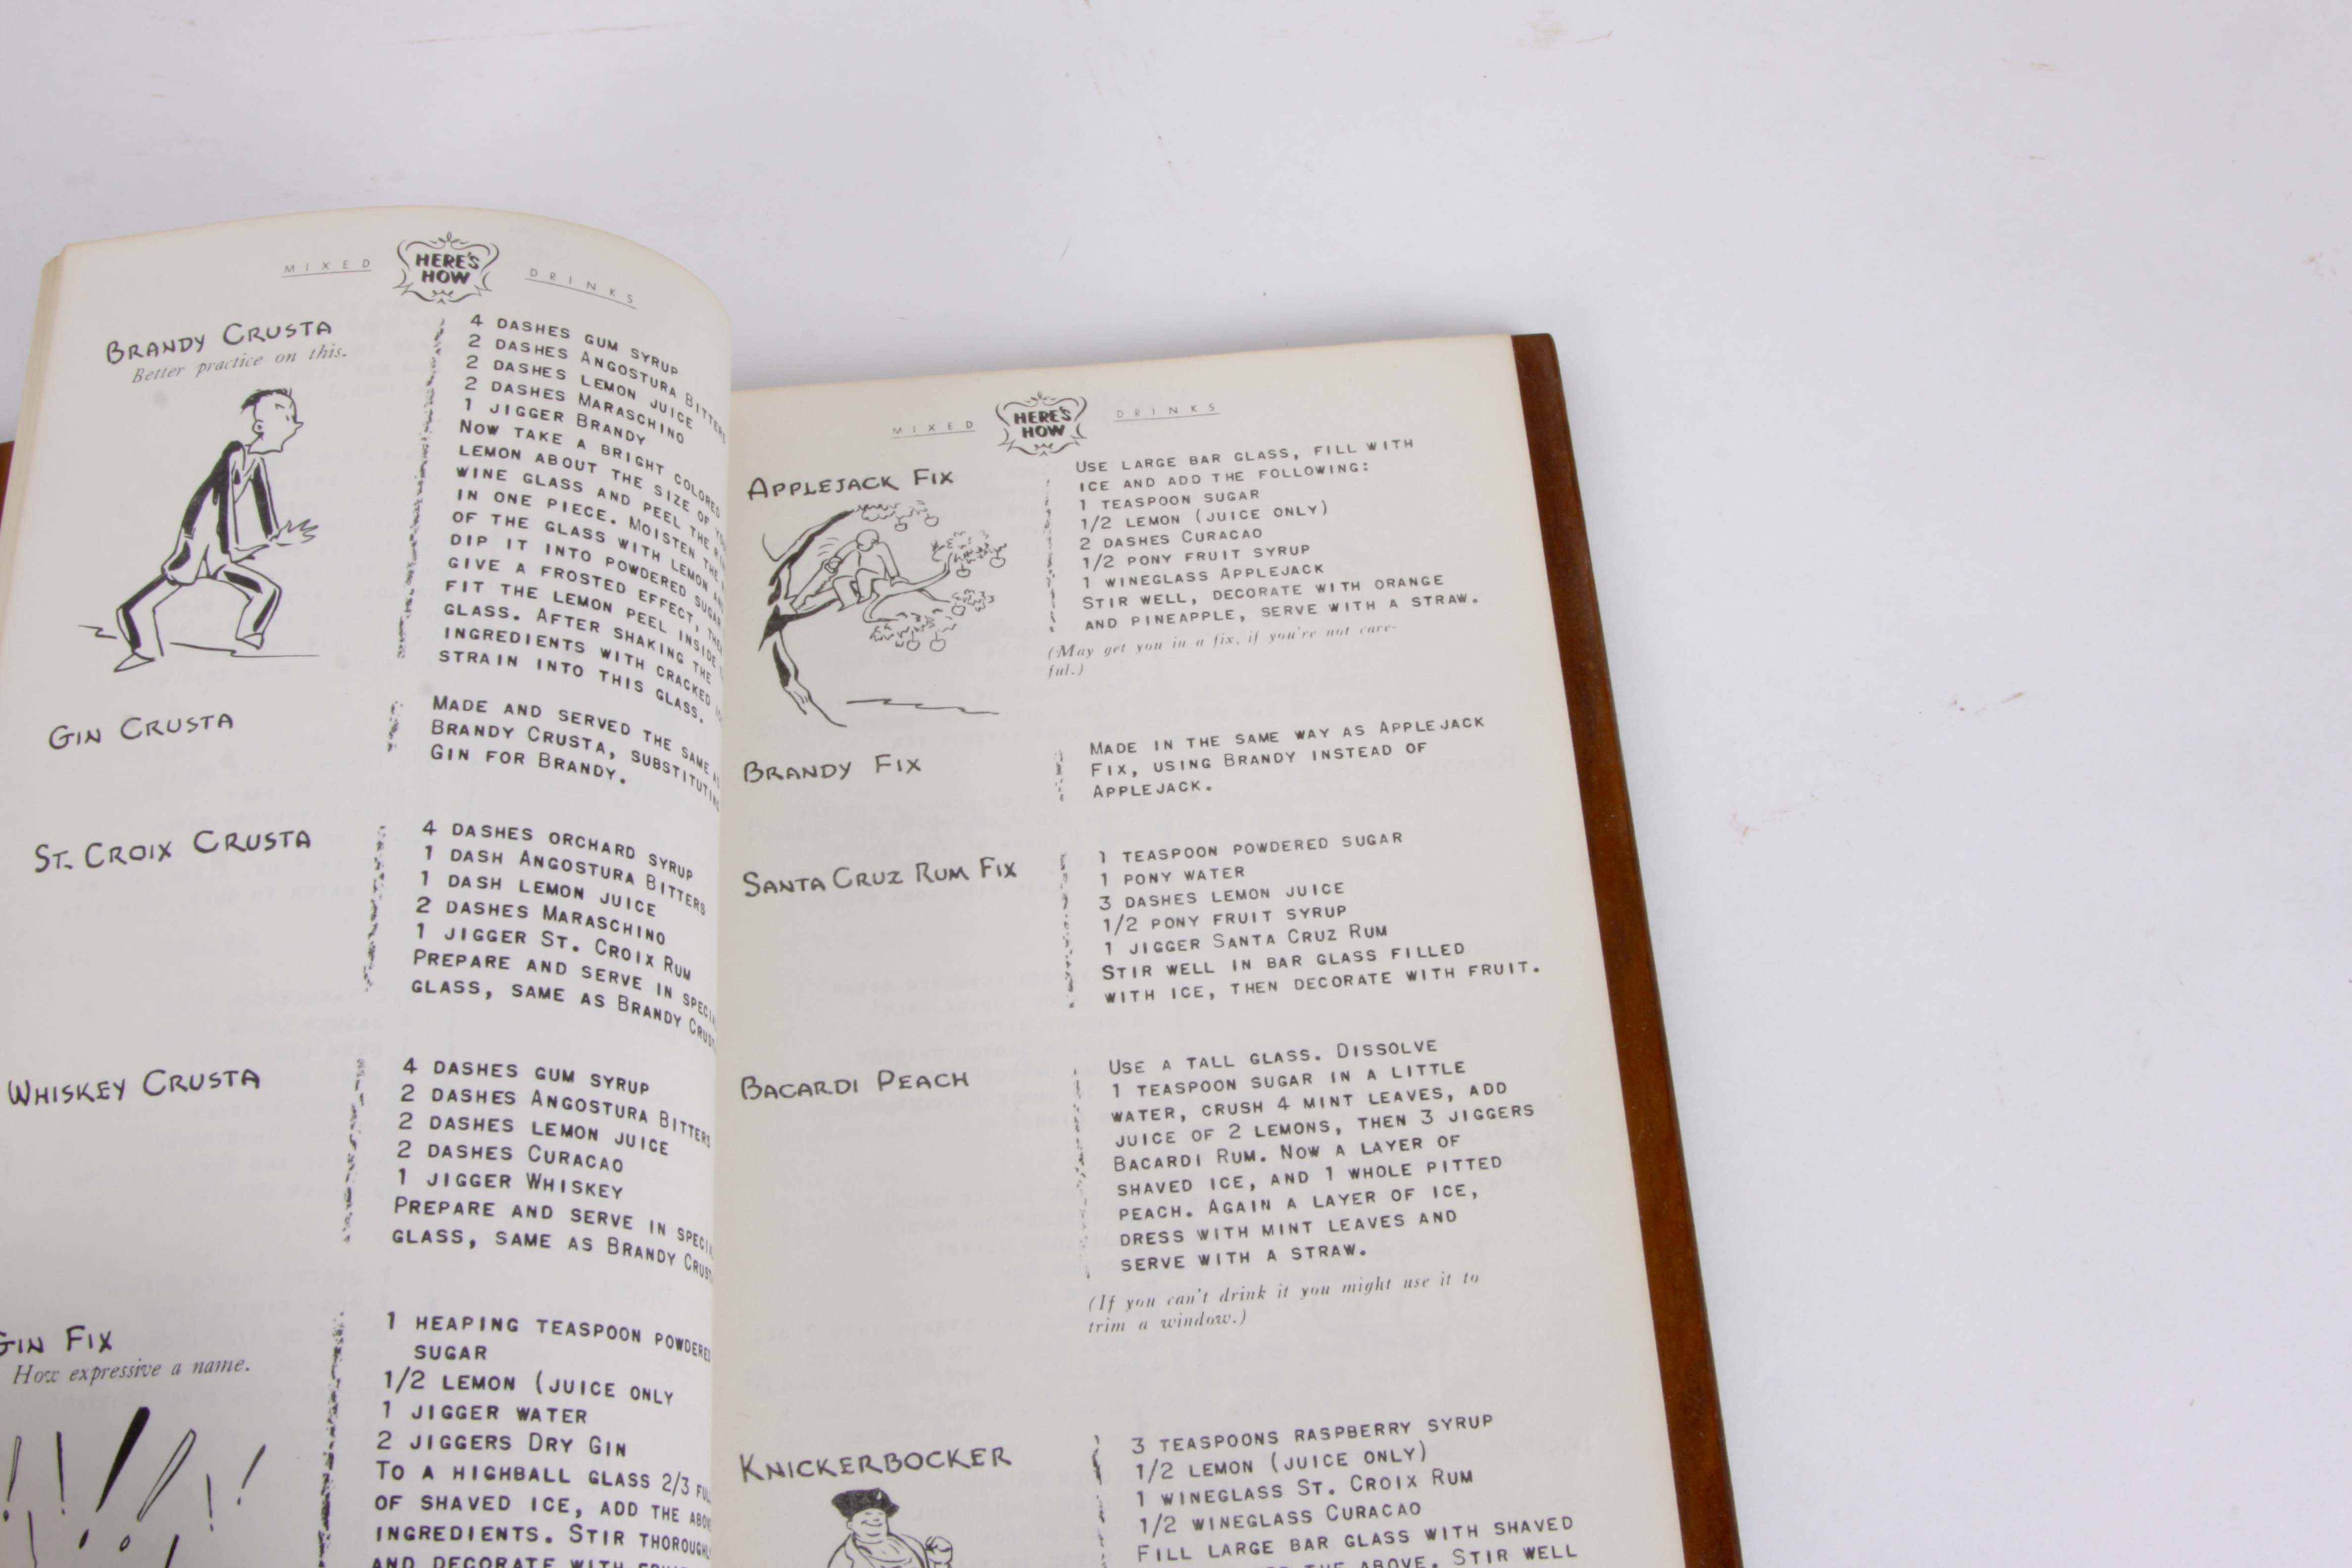 MIXED HERE'S HOW DRINKS
BRANDY CRUSTA
Better practice on this.
4 DASHES GUM SYRUP
2 DASHES ANGOSTURA BITTERS
2 DASHES LEMON JUICE
2 DASHES MARASCHINO
1 JIGGER BRANDY
NOW TAKE A BRIGHT COLORED
LEMON ABOUT THE SIZE OF
WINE GLASS AND PEEL THE
IN ONE PIECE. MOISTEN THE
OF THE GLASS WITH LEMON
DIP IT INTO POWDERED SUGAR
GIVE A FROSTED EFFECT,
FIT THE LEMON PEEL INSIDE
GLASS. AFTER SHAKING THE
INGREDIENTS WITH CRACKED
STRAIN INTO THIS GLASS.
GIN CRUSTA
MADE AND SERVED THE SAME
BRANDY CRUSTA, SUBSTITUTING
GIN FOR BRANDY.
ST. CROIX CRUSTA
4 DASHES ORCHARD SYRUP
1 DASH ANGOSTURA BITTERS
1 DASH LEMON JUICE
2 DASHES MARASCHINO
1 JIGGER ST. CROIX RUM
PREPARE AND SERVE IN
GLASS, SAME AS BRANDY
WHISKEY CRUSTA
4 DASHES GUM SYRUP
2 DASHES ANGOSTURA BITTERS
2 DASHES LEMON JUICE
2 DASHES CURACAO
1 JIGGER WHISKEY
PREPARE AND SERVE IN
GLASS, SAME AS BRANDY
GIN FIX
How expressive a name.
1 HEAPING TEASPOON POWDERED
SUGAR
1/2 LEMON (JUICE ONLY
1 JIGGER WATER
2 JIGGERS DRY GIN
TO A HIGHBALL GLASS 2/3
OF SHAVED ICE, ADD THE
INGREDIENTS. STIR
AND DECORATE WITH
MIXED HERE'S HOW DRINKS
APPLEJACK FIX
USE LARGE BAR GLASS, FILL WITH
ICE AND ADD THE FOLLOWING:
1 TEASPOON SUGAR
1/2 LEMON (JUICE ONLY)
2 DASHES CURACAO
1/2 PONY FRUIT SYRUP
1 WINEGLASS APPLEJACK
STIR WELL, DECORATE WITH ORANGE
AND PINEAPPLE, SERVE WITH A STRAW.
(May get you in a fix, if you're not care-
ful.)
BRANDY FIX
MADE IN THE SAME WAY AS APPLEJACK
FIX, USING BRANDY INSTEAD OF
APPLEJACK.
SANTA CRUZ RUM FIX
1 TEASPOON POWDERED SUGAR
1 PONY WATER
3 DASHES LEMON JUICE
1/2 PONY FRUIT SYRUP
1 JIGGER SANTA CRUZ RUM
STIR WELL IN BAR GLASS FILLED
WITH ICE, THEN DECORATE WITH FRUIT.
BACARDI PEACH
USE A TALL GLASS. DISSOLVE
1 TEASPOON SUGAR IN A LITTLE
WATER, CRUSH 4 MINT LEAVES, ADD
JUICE OF 2 LEMONS, THEN 3 JIGGERS
BACARDI RUM. NOW A LAYER OF
SHAVED ICE, AND 1 WHOLE PITTED
PEACH. AGAIN A LAYER OF ICE,
DRESS WITH MINT LEAVES AND
SERVE WITH A STRAW.
(If you can't drink it you might use it to
trim a window.)
KNICKERBOCKER
3 TEASPOONS RASPBERRY SYRUP
1/2 LEMON (JUICE ONLY)
1 WINEGLASS ST. CROIX RUM
1/2 WINEGLASS CURACAO
FILL LARGE BAR GLASS WITH SHAVED
THE ABOVE. STIR WELL